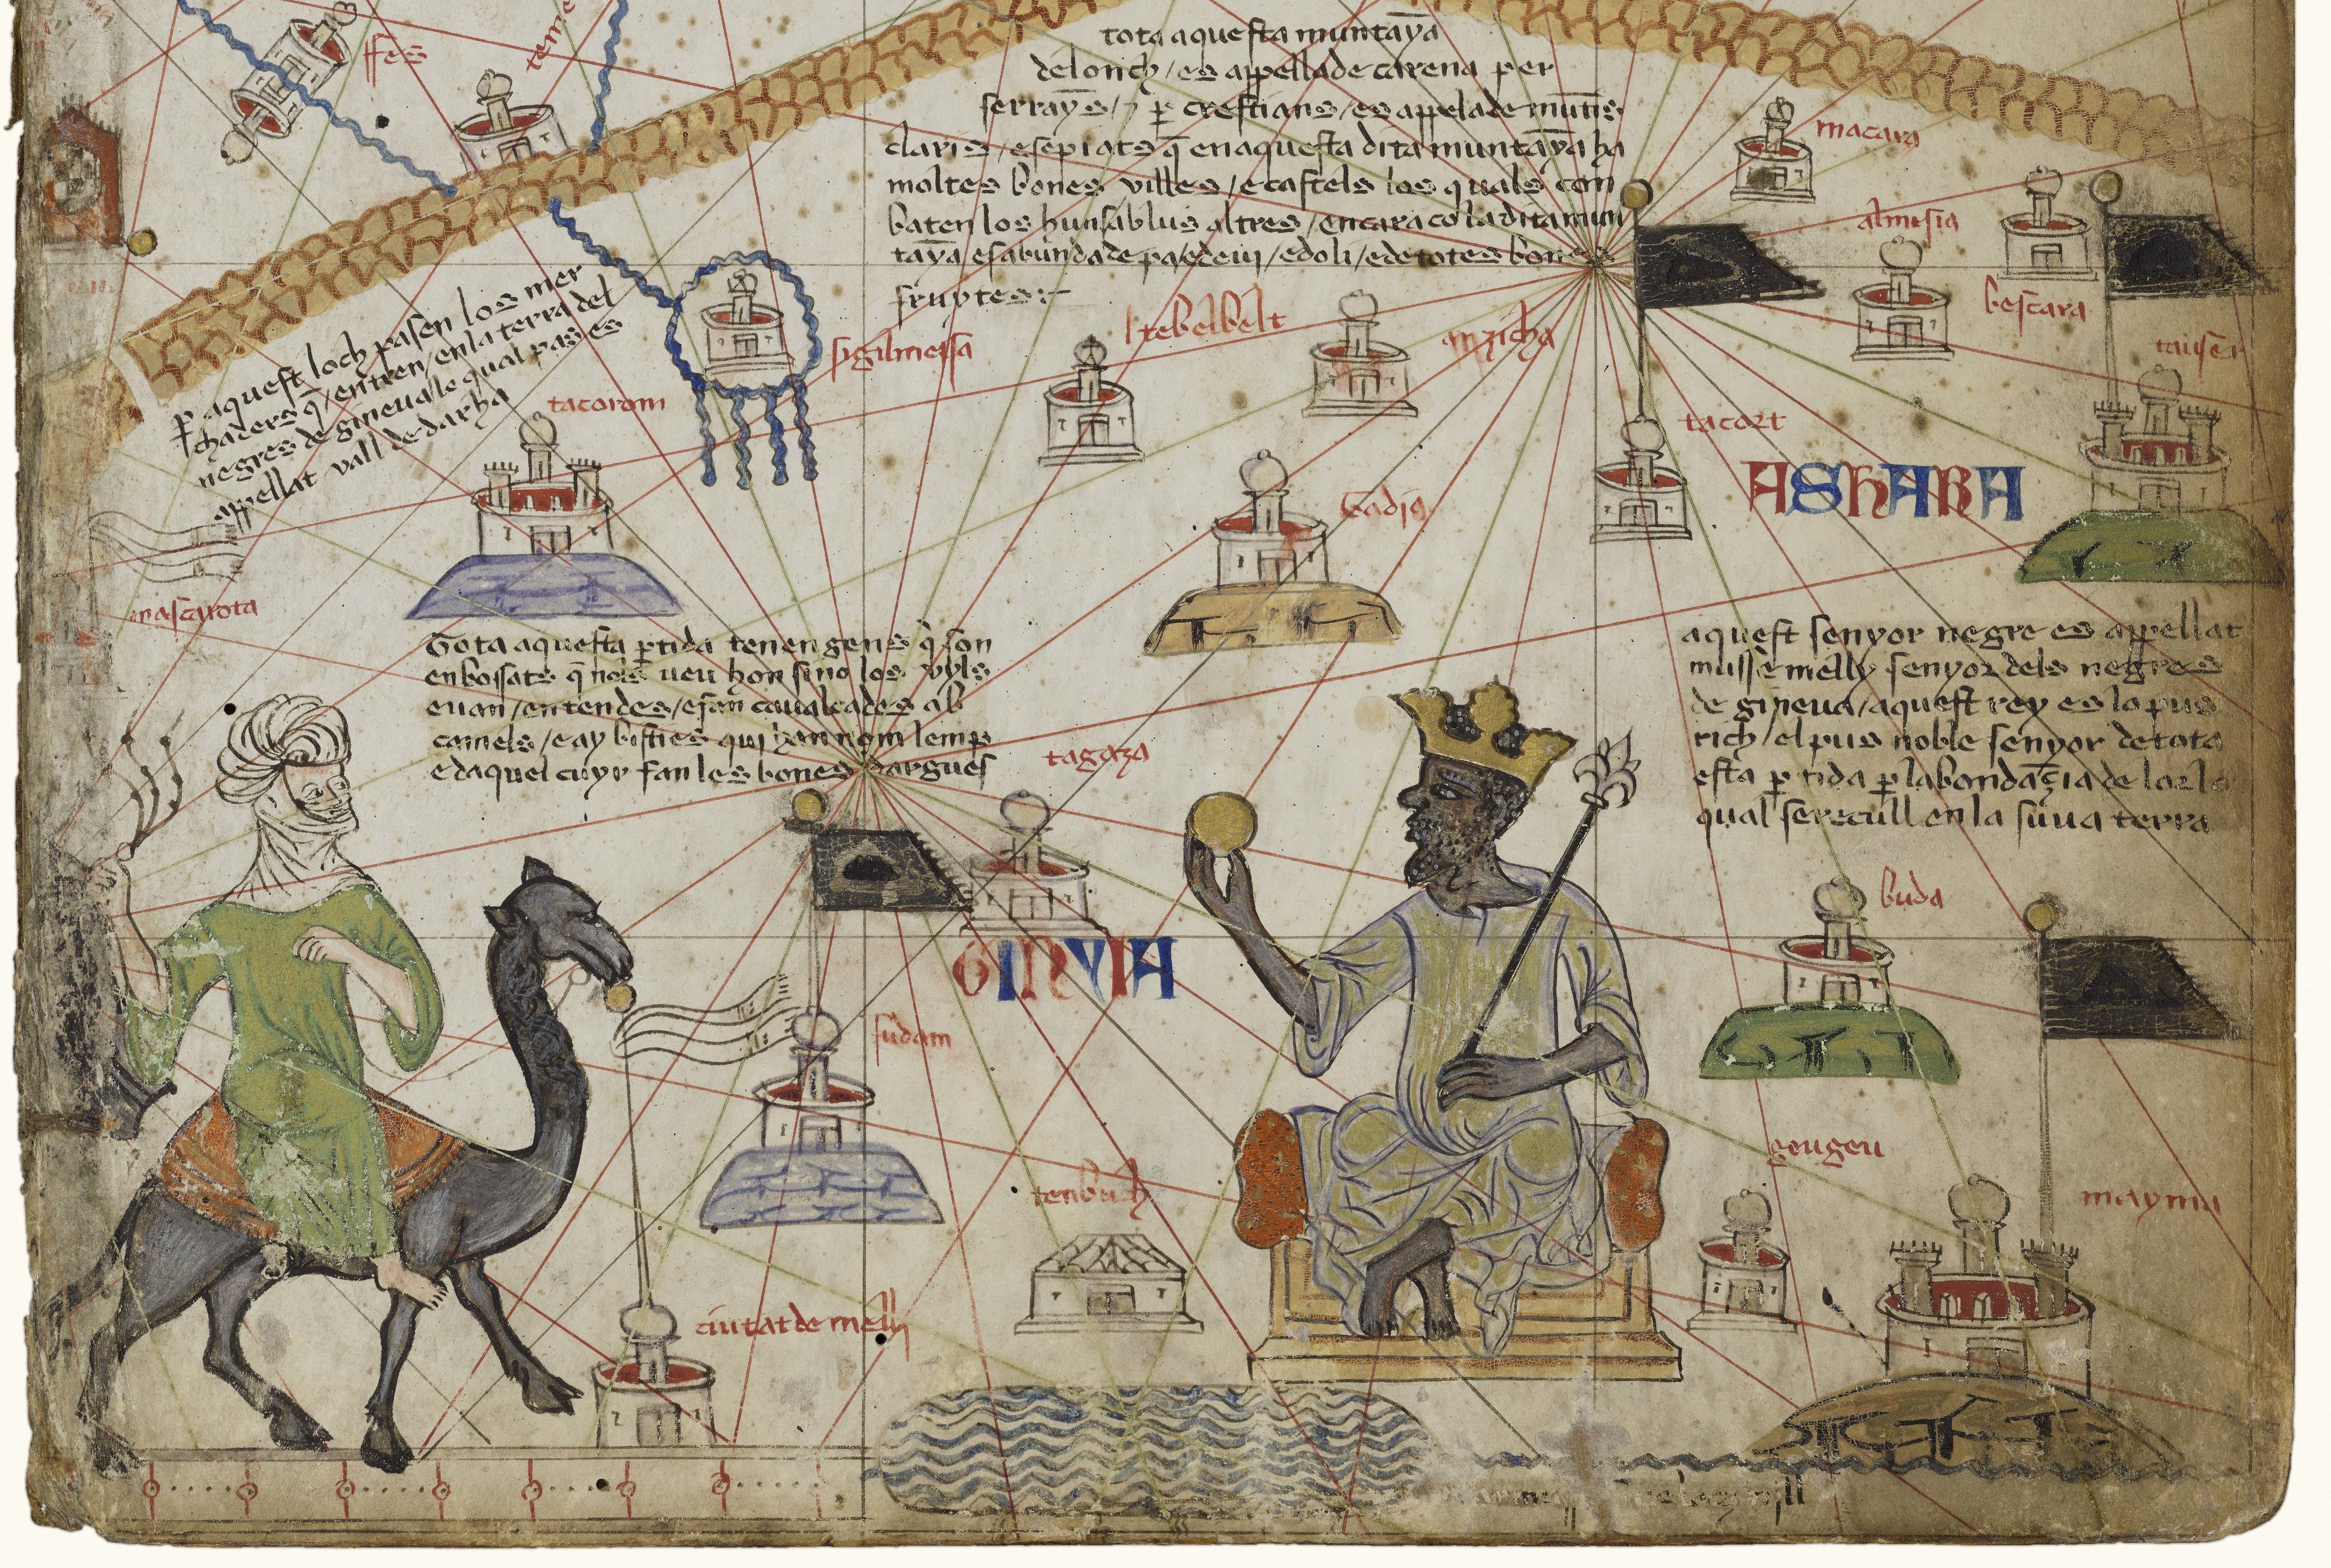 ffes
teme
tota aquesta muntaỹa
de lonch / es appellade carena per
serrayns / ⁊ ꝑ crestians / es appelade muntis
claris / e sepiats q̄ en aquesta dita muntaỹa ha
moltes bones villes / e castels los quals con
baten los huns ab lus altres / encara co la dita mun
taỹa es abunda de pa / e de vij / e doli / e de totes bones
fruytes :~
macara
almesia
bescara
tauser
ꝑ aquest loch pasen los mer
chaders q̄ / entren / en la terra del
negres de gineua le qual pas es
appellat vall de darha
tacorom
sigilmessa
tebelbelt
anzicha
tacort
ASHARA
tadia
mascarota
Tota aquesta ꝑtida tenen gens q̄ son
enbossats q̄ nols veu hon sino los vyls
e van / en tendes / e fan caualcades ab
camels / e ay bisties qui han nom lemp
e daquel cuyr fan les bones dargues
aquest senyor negre es appellat
musse melly senyor dels negres
de gineua / aquest rey es lo pus
rich / el pus noble senyor de tota
esta ꝑtida ꝑ labondaçia de lor lo
qual se recull en la suua terra
tagaza
GINYIA
buda
sudam
tenbuch
geugeu
mayma
ciutat de melly